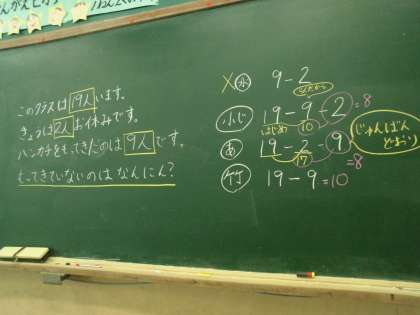 このクラスは19人います。
きょうは2人お休みです。
ハンカチをもってきたのは9人です。
もってきていないのはなんにん?
X 水 9-2
小じ 19-9-2=8
はじめ 10
あ 19-2-9
17
=8
じゅんばん
竹 19-9=10